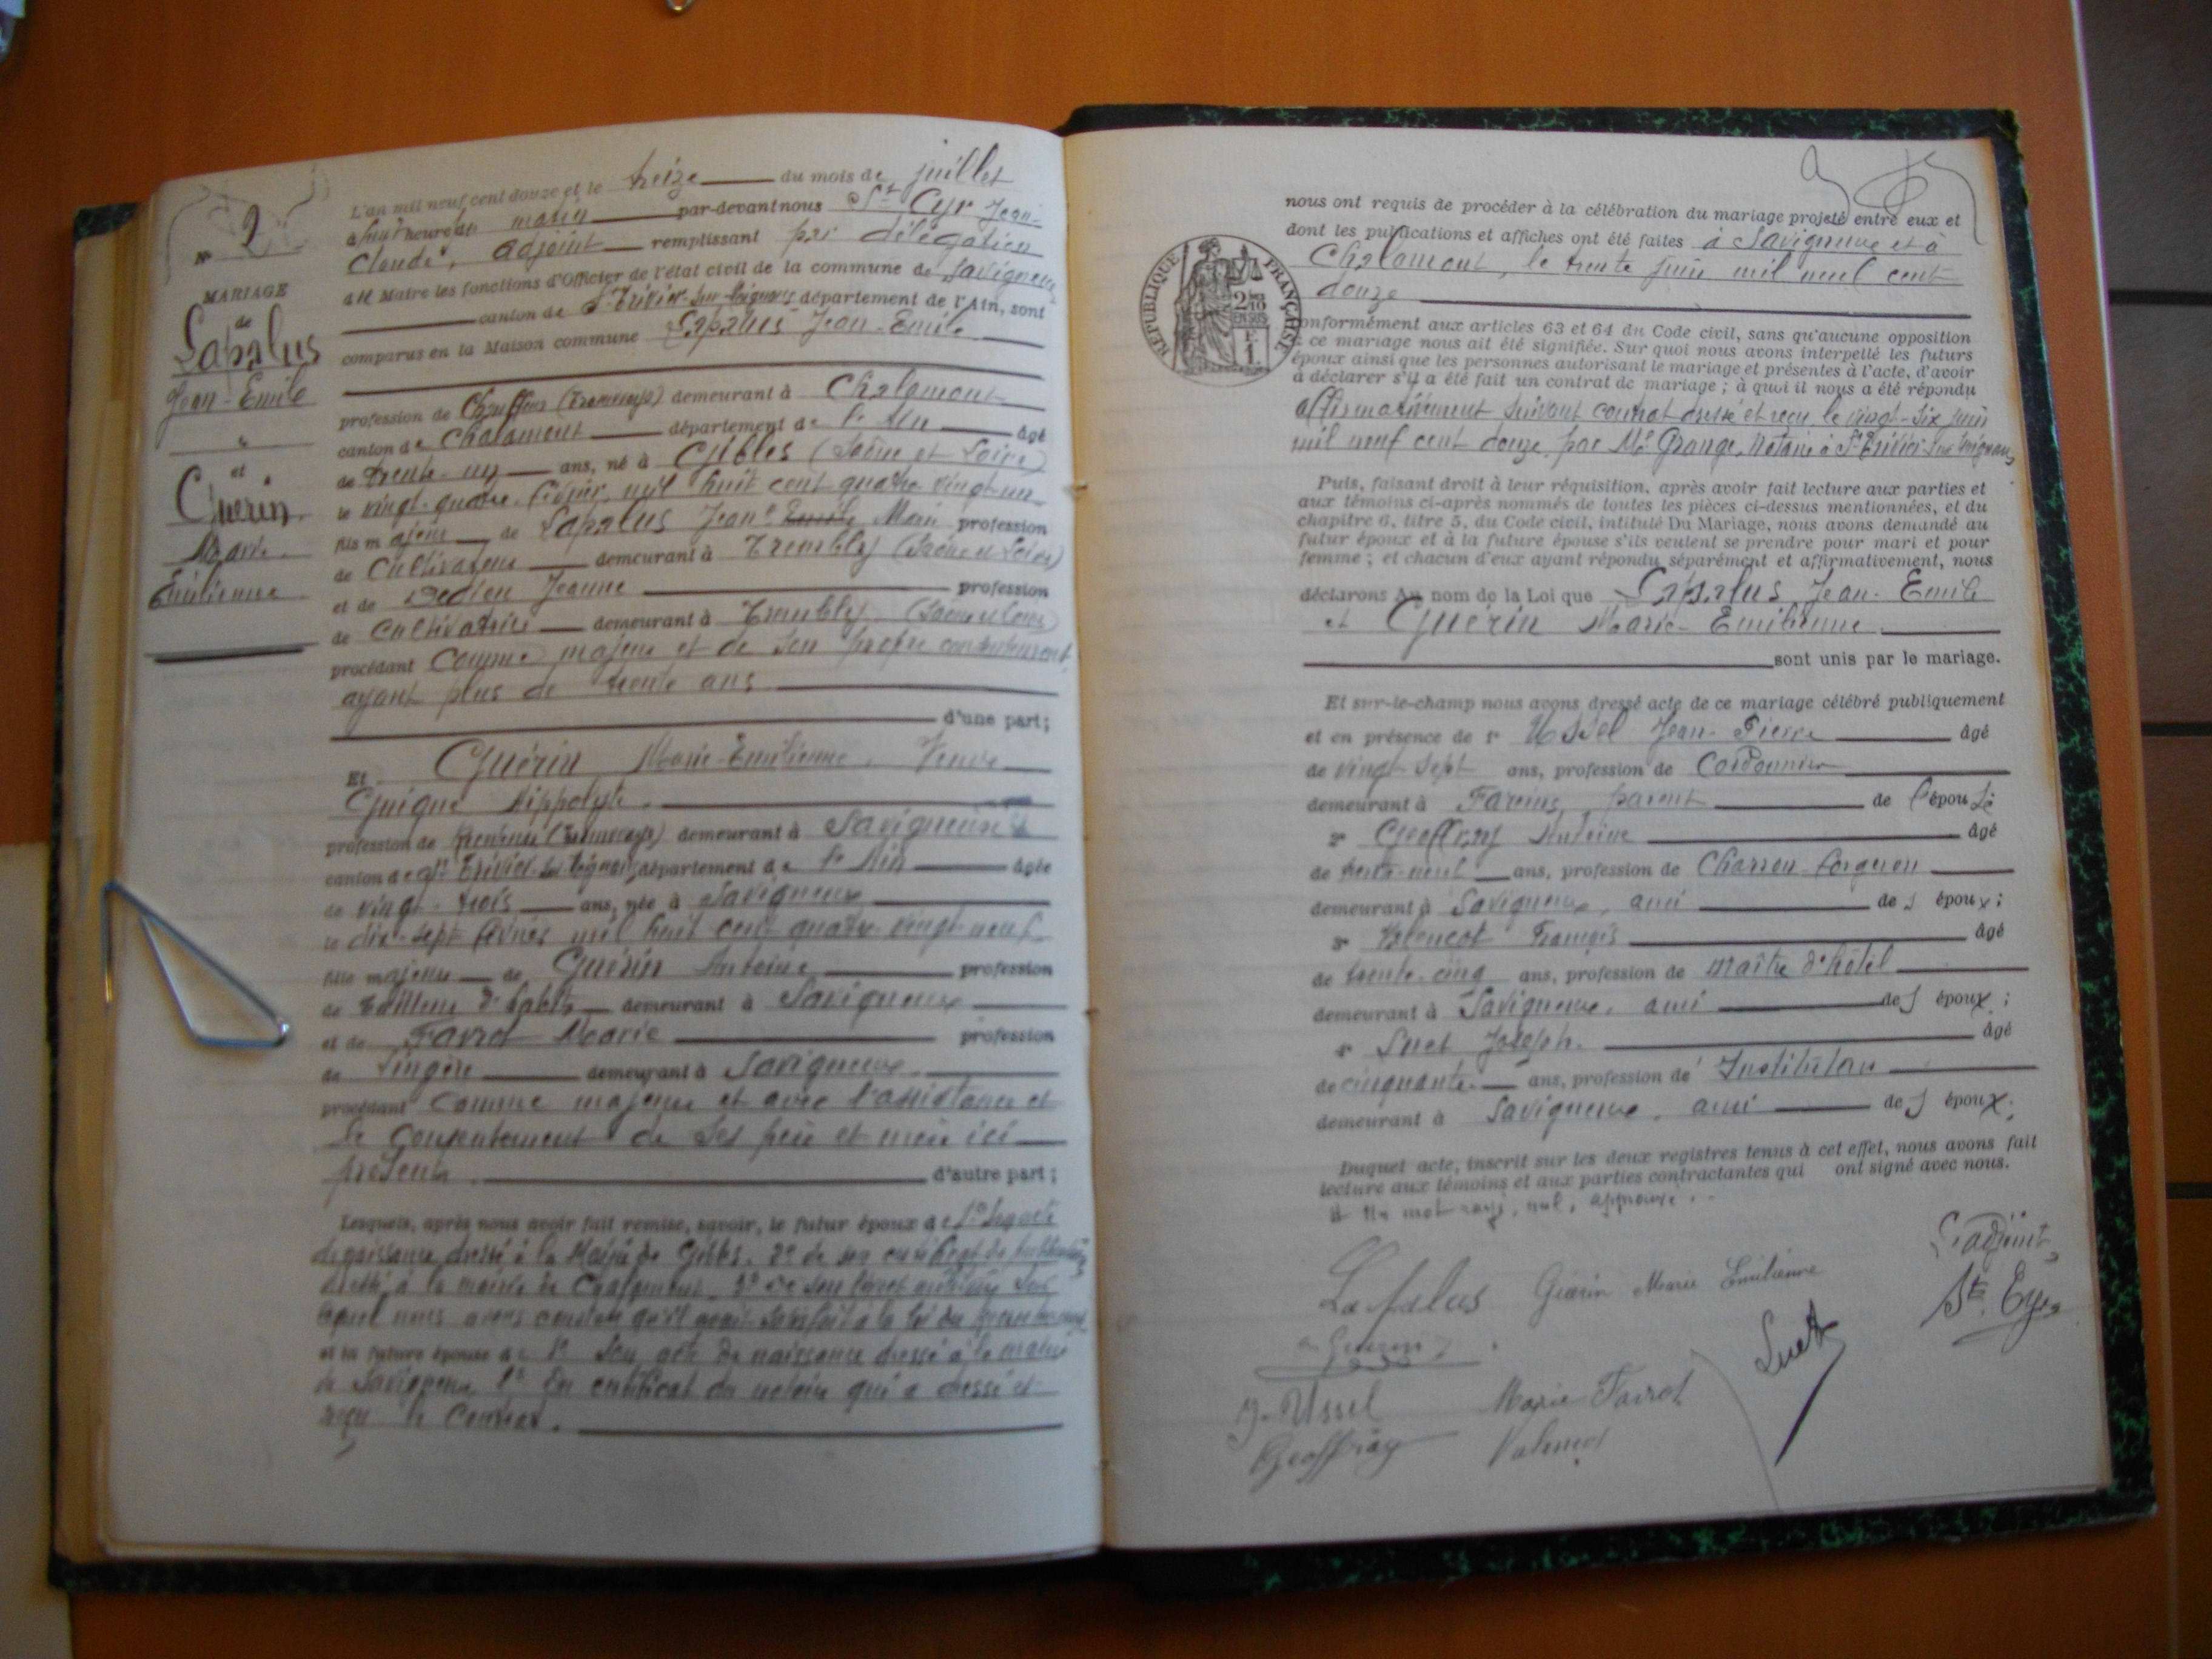 N° 2
MARIAGE
de
Lapalus
Jean-Emile
"
et
Guérin
Marie
Emilienne
L'an mil neuf cent douze et le treize du mois de juillet
à huit heure du matin par-devant nous St Cyr Jean-
Claude, adjoint remplissant par délégation
du Maire les fonctions d'Officier de l'état civil de la commune de Savigneux
canton de St Trivier-sur-Moignans département de l'Ain, sont
comparus en la Maison commune Lapalus Jean-Emile
profession de Chauffeur demeurant à Chalamont
canton de Chalamont département de l'Ain âgé
de trente-un ans, né à Gibles (Saône et Loire)
le vingt-quatre février mil huit cent quatre vingt-un
fils majeur de Lapalus Jean Emile Marie profession
de Cultivateur demeurant à Trembly (Saône et Loire)
et de Dedieu Jeanne profession
de Cultivatrice demeurant à Trembly (Saône et Loire)
procédant comme majeur et de son propre consentement
ayant plus de trente ans
d'une part;
Et Guérin Marie-Emilienne, Veuve
Guigue Hippolyte
profession de demeurant à Savigneux
canton de St Trivier-sur-Moignans département de l'Ain âgée
de vingt-trois ans, née à Savigneux
le dix-sept février mil huit cent quatre-vingt-neuf
fille majeure de Guérin Antoine profession
de tailleur d'habits demeurant à Savigneux
et de Favrot Marie profession
de Lingère demeurant à Savigneux
procédant comme majeure et avec l'assistance et
le consentement de ses père et mère ici
présents d'autre part;
Lesquels, après nous avoir fait remise, savoir, le futur époux de 1° Son acte
de naissance dressé à la Mairie de Gibles. 2° de son certificat de publication
dressé à la mairie de Chalamont. 3° de son livret militaire sur
lequel nous avons constaté qu'il avait satisfait à la loi du recrutement
et la future épouse de 1° Son acte de naissance dressé à la mairie
de Savigneux 2° Du certificat du notaire qui a dressé et
reçu le Contrat.
nous ont requis de procéder à la célébration du mariage projeté entre eux et
dont les publications et affiches ont été faites à Savigneux et à
Chalamont, le trente juin mil neuf cent
douze
RÉPUBLIQUE FRANÇAISE
2/10
EN SUS
1 F.
conformément aux articles 63 et 64 du Code civil, sans qu'aucune opposition
à ce mariage nous ait été signifiée. Sur quoi nous avons interpellé les futurs
époux ainsi que les personnes autorisant le mariage et présentes à l'acte, d'avoir
à déclarer s'il a été fait un contrat de mariage ; à quoi il nous a été répondu
affirmativement suivant contrat dressé et reçu le vingt-six juin
mil neuf cent douze par Me Grange, Notaire à St Trivier-sur-Moignans
Puis, faisant droit à leur réquisition, après avoir fait lecture aux parties et
aux témoins ci-après nommés de toutes les pièces ci-dessus mentionnées, et du
chapitre 6, titre 5, du Code civil, intitulé Du Mariage, nous avons demandé au
futur époux et à la future épouse s'ils veulent se prendre pour mari et pour
femme ; et chacun d'eux ayant répondu séparément et affirmativement, nous
déclarons Au nom de la Loi que Lapalus Jean-Emile
et Guérin Marie-Emilienne
sont unis par le mariage.
Et sur-le-champ nous avons dressé acte de ce mariage célébré publiquement
et en présence de sr Ussel Jean-Pierre âgé
de vingt-sept ans, profession de Cordonnier
demeurant à Fareins, parent de l'épouse
sr Geoffray Antoine âgé
de trente-neuf ans, profession de Charron-forgeron
demeurant à Savigneux, ami des époux;
sr Valencot François âgé
de trente-cinq ans, profession de maître d'hôtel
demeurant à Savigneux, ami des époux;
sr Suet Joseph âgé
de cinquante ans, profession de Instituteur
demeurant à Savigneux, ami des époux;
Duquel acte, inscrit sur les deux registres tenus à cet effet, nous avons fait
lecture aux témoins et aux parties contractantes qui ont signé avec nous.
Un mot rayé, nul, approuvé.
L'adjoint,
Lapalus Guérin Marie Emilienne St. Cyr
Guérin Suet
J. Ussel Marie Favrot
Geoffray Valencot